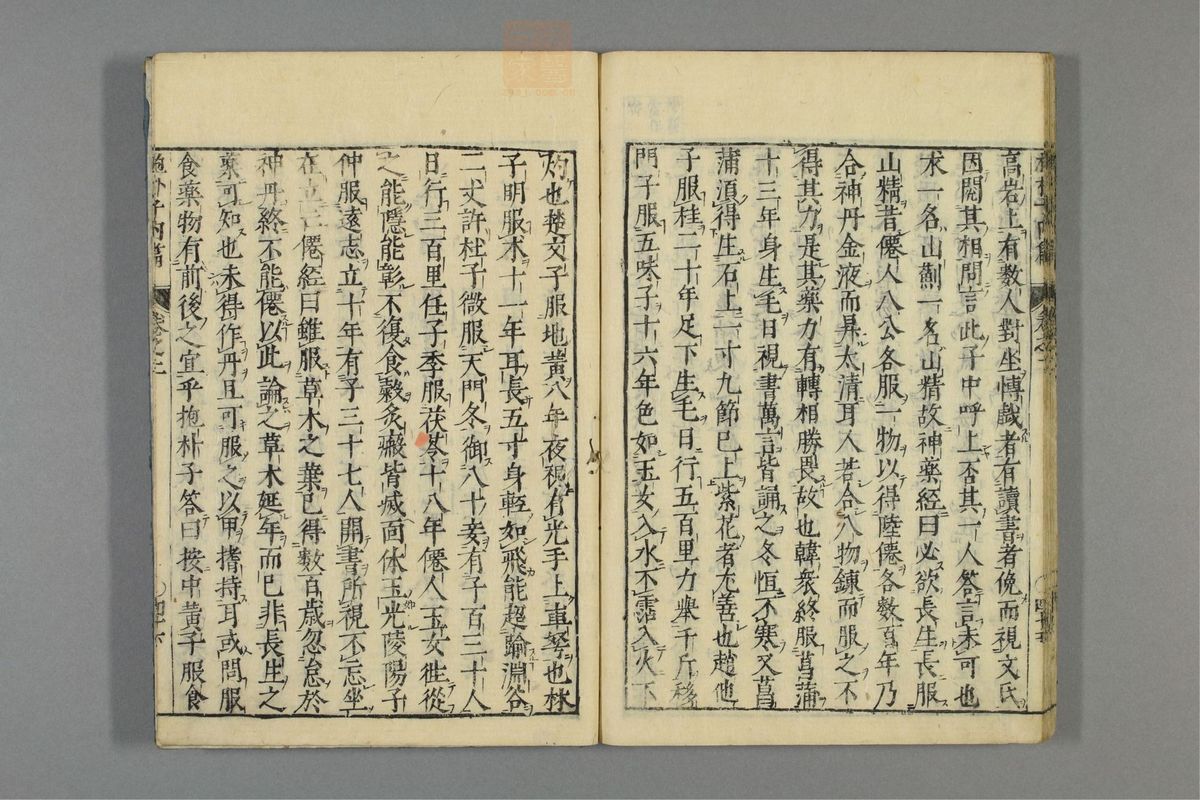 高岩上有數人對坐愽戯者有讀書者俛而視文氏
因聞其相問言此子中呼上否其一人答言未可也
求一名山薊一名山精故神藥經曰必欲長生長服
山精昔僊人八公各服一物以得陸僊各數百年乃
合神丹金液而昇太清耳人若合八物錬而服之不
得其力是其藥力有轉相勝畏故也韓衆終服菖蒲
十三年身生毛日視書萬言皆誦之冬恒不寒又菖
蒲湏得生石上一寸九節已上紫花者尤善也趙他
子服桂二十年足下生毛日行五百里力舉千斤移
門子服五味子十六年色如玉女入水不霑入火不
灼也楚文子服地黃八年夜視有光手上車弩也林
子明服朮十一年耳長五寸身輕如飛能超踰淵谷
二丈許杜子微服天門冬御八十妾有子百三十人
日行三百里任子季服茯苓十八年僊人玉女徃從
之能隱能彰不復食糓灸瘢皆㓕面体玉光陵陽子
仲服遠志立十年有子三十七人開書所視不忘坐
在立亡僊經曰雖服草木之葉已得數百歳忽怠於
神丹終不能僊以此論之草木延年而已非長生之
藥可知也未得作丹且可服之以甲撘持耳或問服
食藥物有前後之宜乎抱朴子答曰按中黃子服食
抱朴子内篇
卷之二